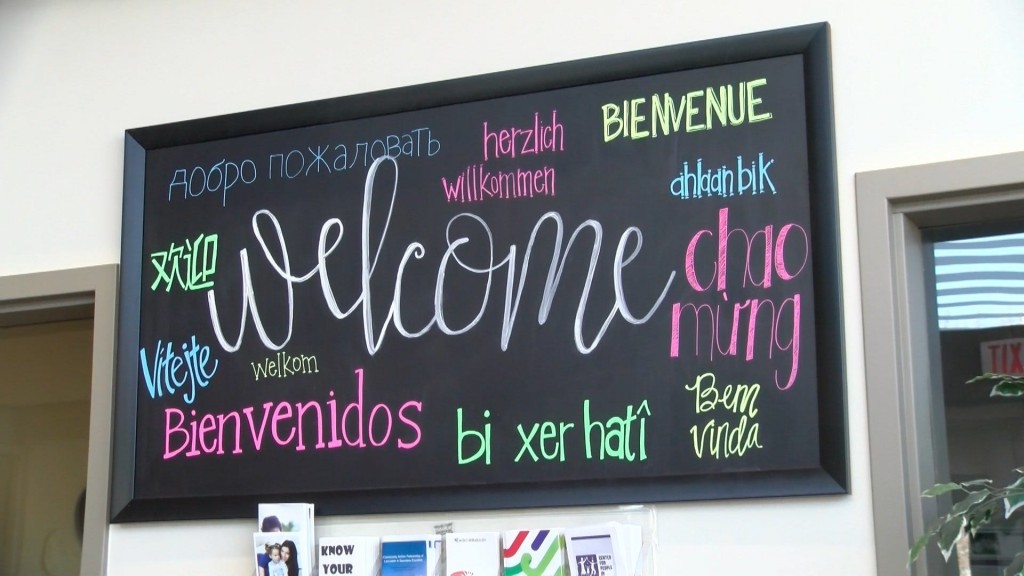 добро пожаловать
herzlich
willkommen
BIENVENUE
ahlaan bik
欢迎
welcome
chao
mừng
Vitejte
welkom
Bienvenidos
bi xer hatî
Bem
vinda
KNOW
YOUR